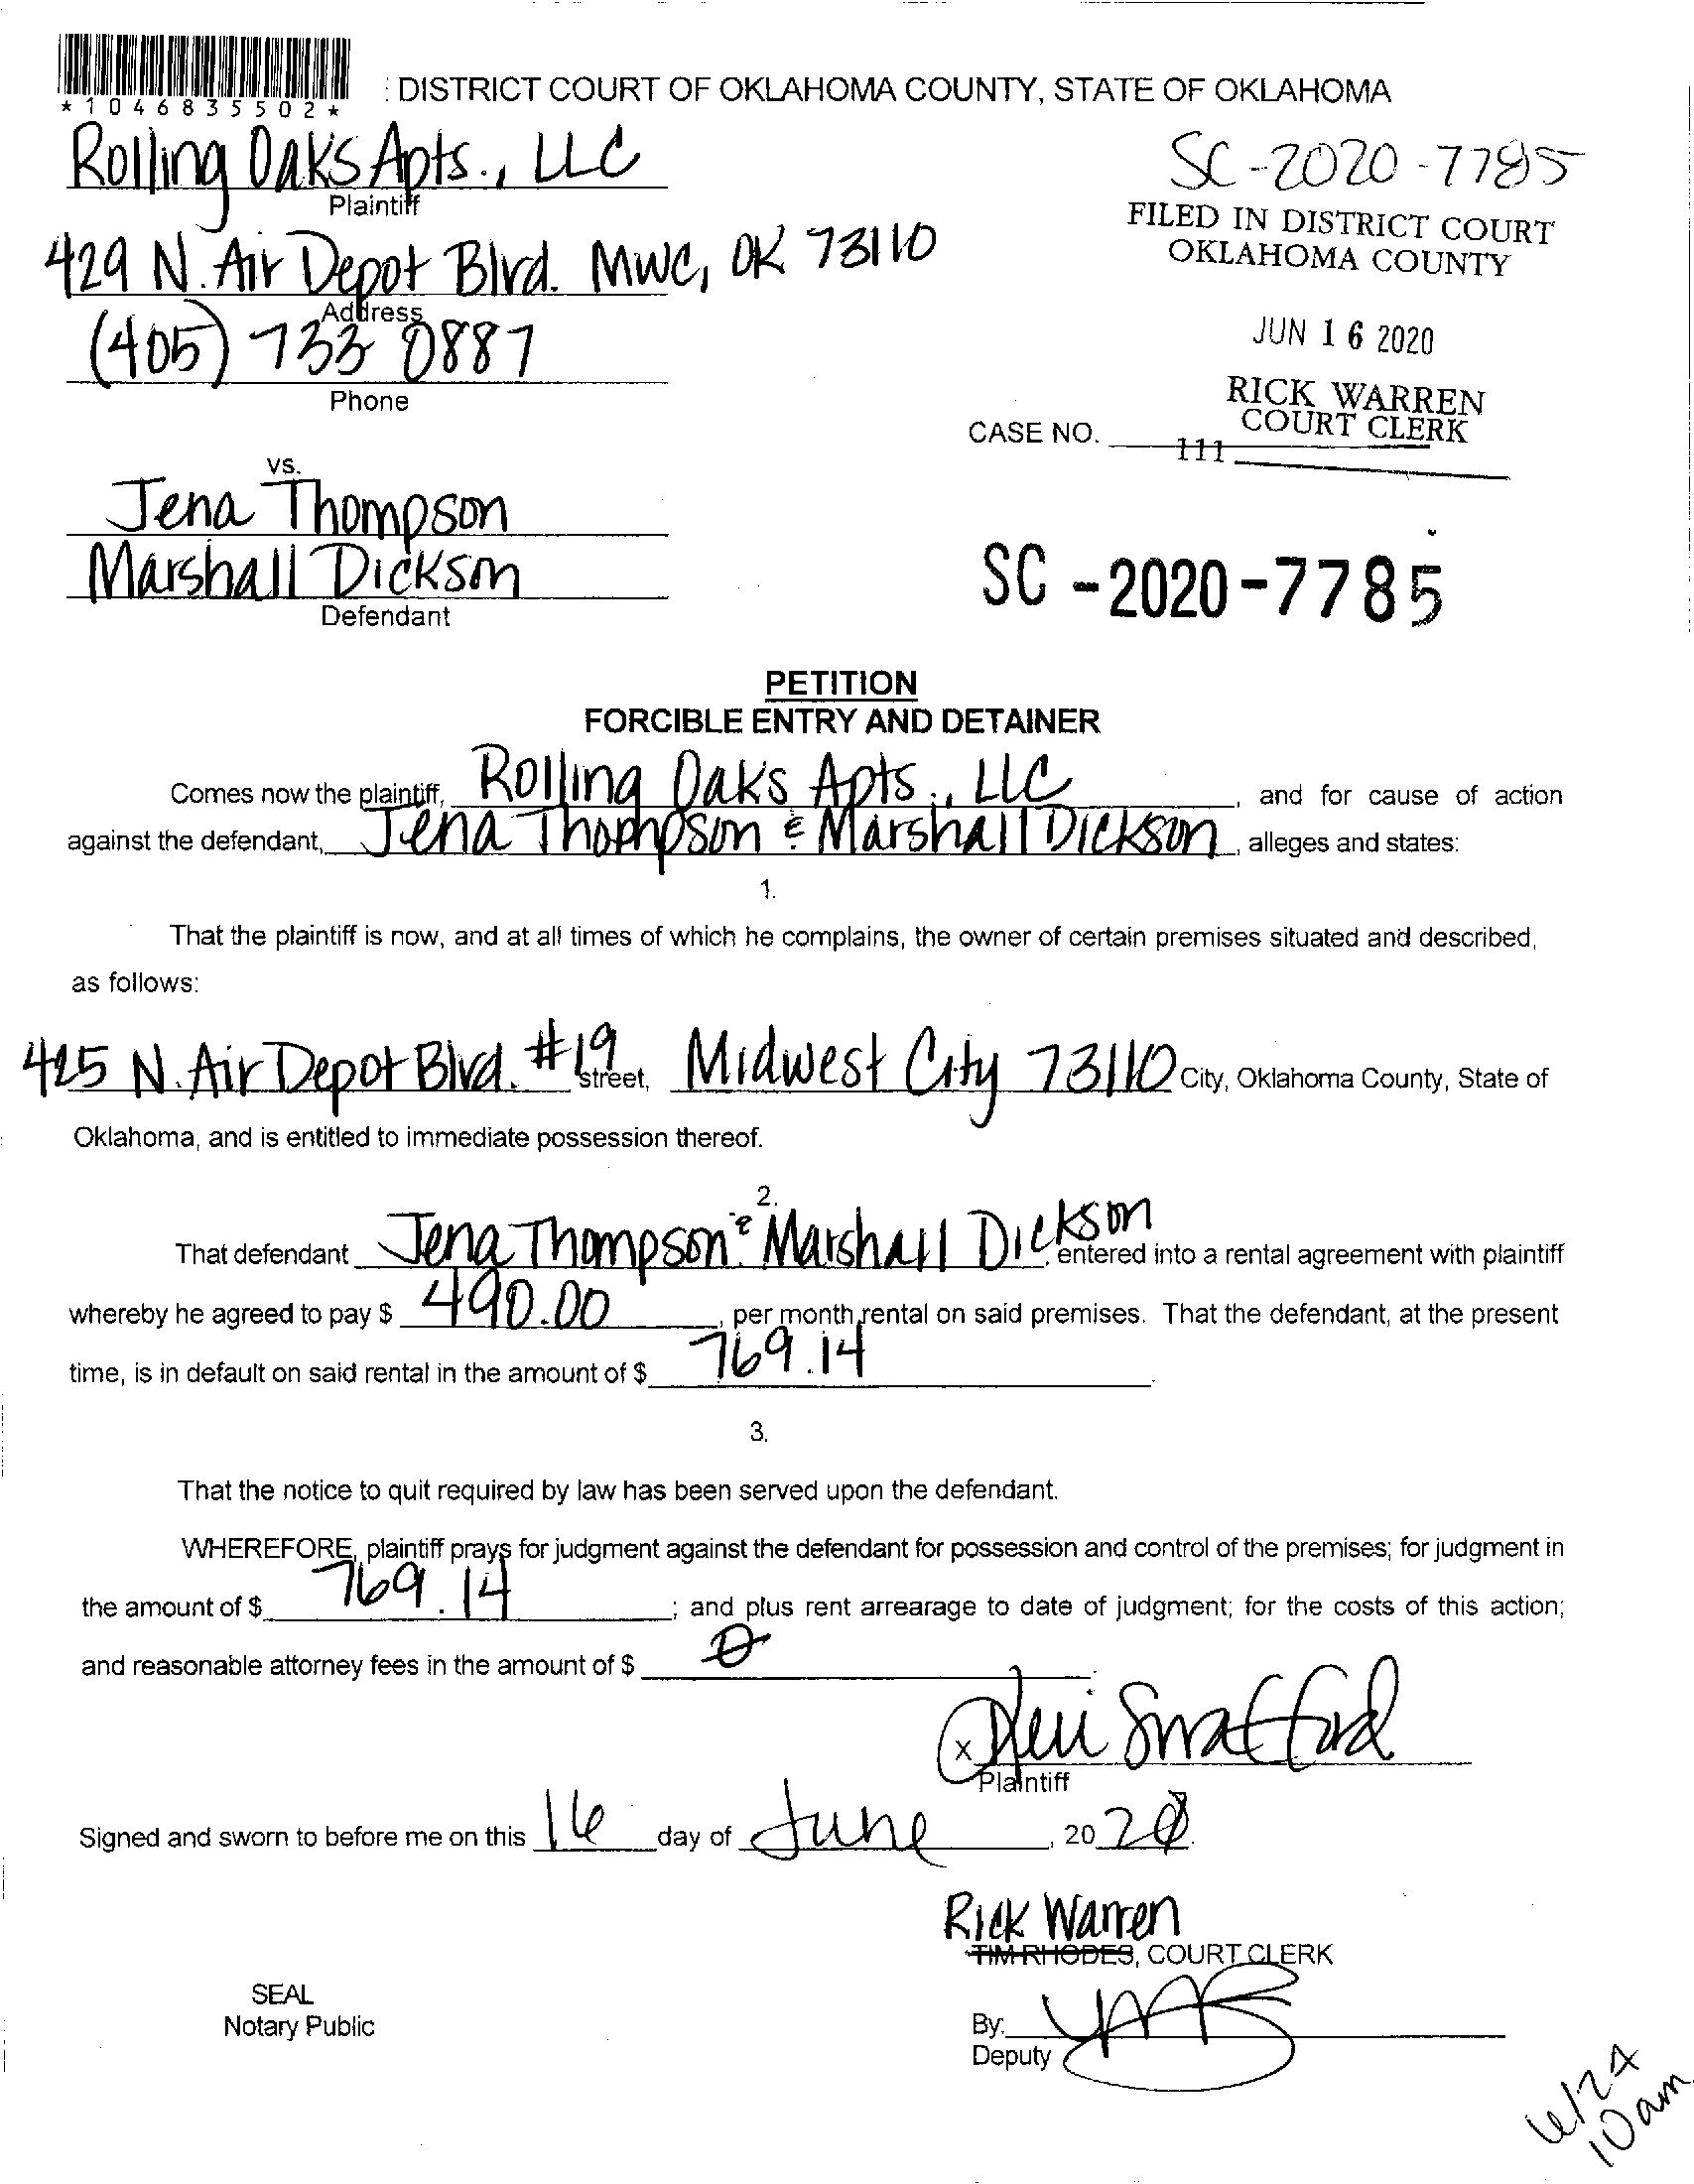 *1046835502*
: DISTRICT COURT OF OKLAHOMA COUNTY, STATE OF OKLAHOMA
Rolling Oaks Apts., LLC
Plaintiff
SC-2020-7785
FILED IN DISTRICT COURT
OKLAHOMA COUNTY
429 N. Air Depot Blvd. MWC, OK 73110
Address
JUN 16 2020
(405) 733 0887
Phone
RICK WARREN
COURT CLERK
CASE NO.
111
vs.
Jena Thompson
Marshall Dickson
Defendant
SC-2020-7785
PETITION
FORCIBLE ENTRY AND DETAINER
Comes now the plaintiff, Rolling Oaks Apts., LLC, and for cause of action
against the defendant, Jena Thompson & Marshall Dickson, alleges and states:
1.
That the plaintiff is now, and at all times of which he complains, the owner of certain premises situated and described,
as follows:
425 N. Air Depot Blvd. #19 street, Midwest City 73110 City, Oklahoma County, State of
Oklahoma, and is entitled to immediate possession thereof.
2.
That defendant Jena Thompson & Marshall Dickson, entered into a rental agreement with plaintiff
whereby he agreed to pay $ 490.00, per month rental on said premises. That the defendant, at the present
time, is in default on said rental in the amount of $ 769.14.
3.
That the notice to quit required by law has been served upon the defendant.
WHEREFORE, plaintiff prays for judgment against the defendant for possession and control of the premises; for judgment in
the amount of $ 769.14; and plus rent arrearage to date of judgment; for the costs of this action;
and reasonable attorney fees in the amount of $ 0
x Keri Swafford
Plaintiff
Signed and sworn to before me on this 16 day of June, 2020.
Rick Warren
TIM RHODES, COURT CLERK
SEAL
Notary Public
By:
Deputy
6/24
10am